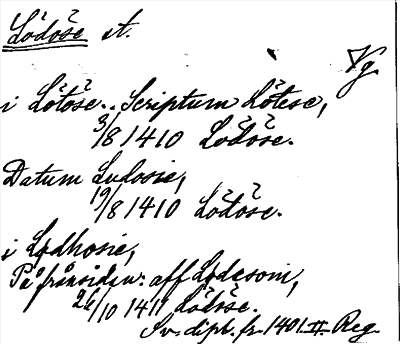 Lödöse st.
Vg
i Lötöse.. Scriptum Lötese,
3/8 1410 Lödöse.
Datum Ludosie,
19/8 1410 Lödöse.
i Lødhosie,
På frånsidan: aff Lødesom,
26/10 1411 Lödöse.
Sv. dipl. fr. 1401 II Reg.